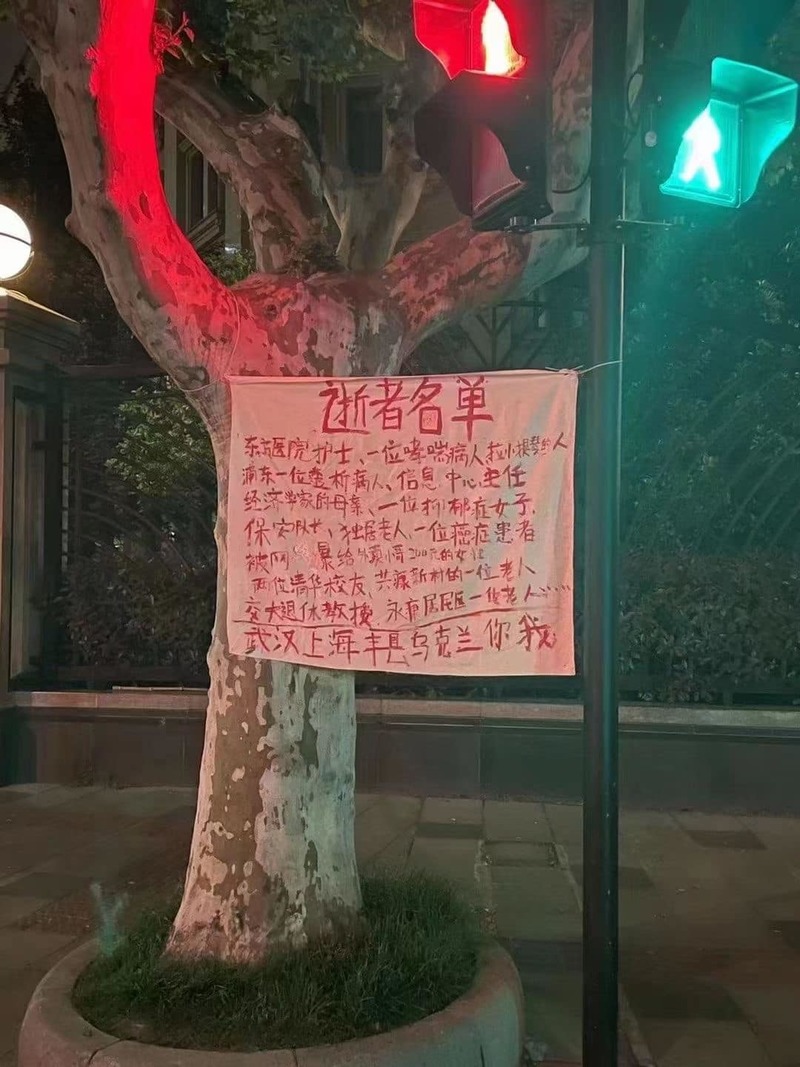 逝者名单
东方医院护士、一位哮喘病人 拉小提琴的人
浦东一位透析病人、信息中心主任
经济学家的母亲、一位抑郁症女子、
保安队长、独居老人、一位癌症患者
被网络暴给外卖小哥200元的女性
两位清华校友、共康新村的一位老人
交大退休教授、永南居民区一位老人……
武汉上海丰县乌克兰你我